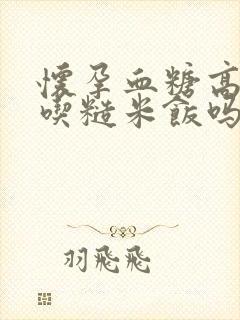 懷孕血糖高
喫糙米飯嗎
羽飛飛